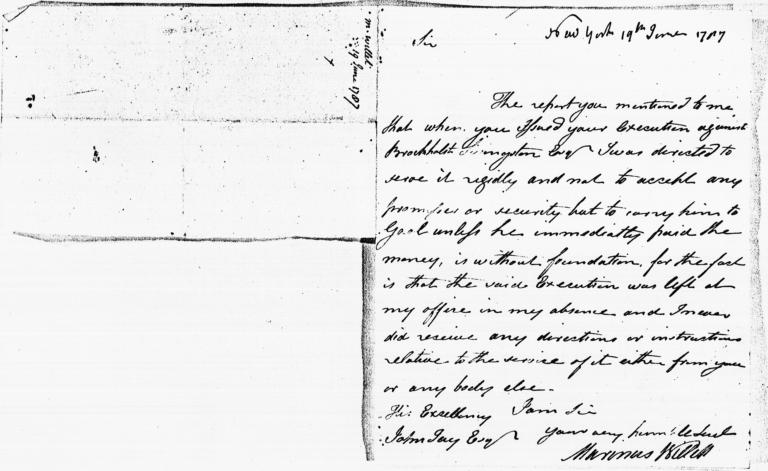 m. willet
19 June 1787
New York 19th June 1787
Sir
The report you mentioned to me
that when you issued your Execution against
Brockholst Livingston Esqr I was directed to
serve it rigidly and not to accept any
promises or security but to carry him to
Goal unless he immediatly paid the
money, is without foundation, for the fact
is that the said Execution was left at
my office in my absence and I never
did receive any directions or instructions
relative to the service of it either from you
or any body else.
His Excellency I am Sir
John Jay Esqr your very humble Servt
Marinus Willett